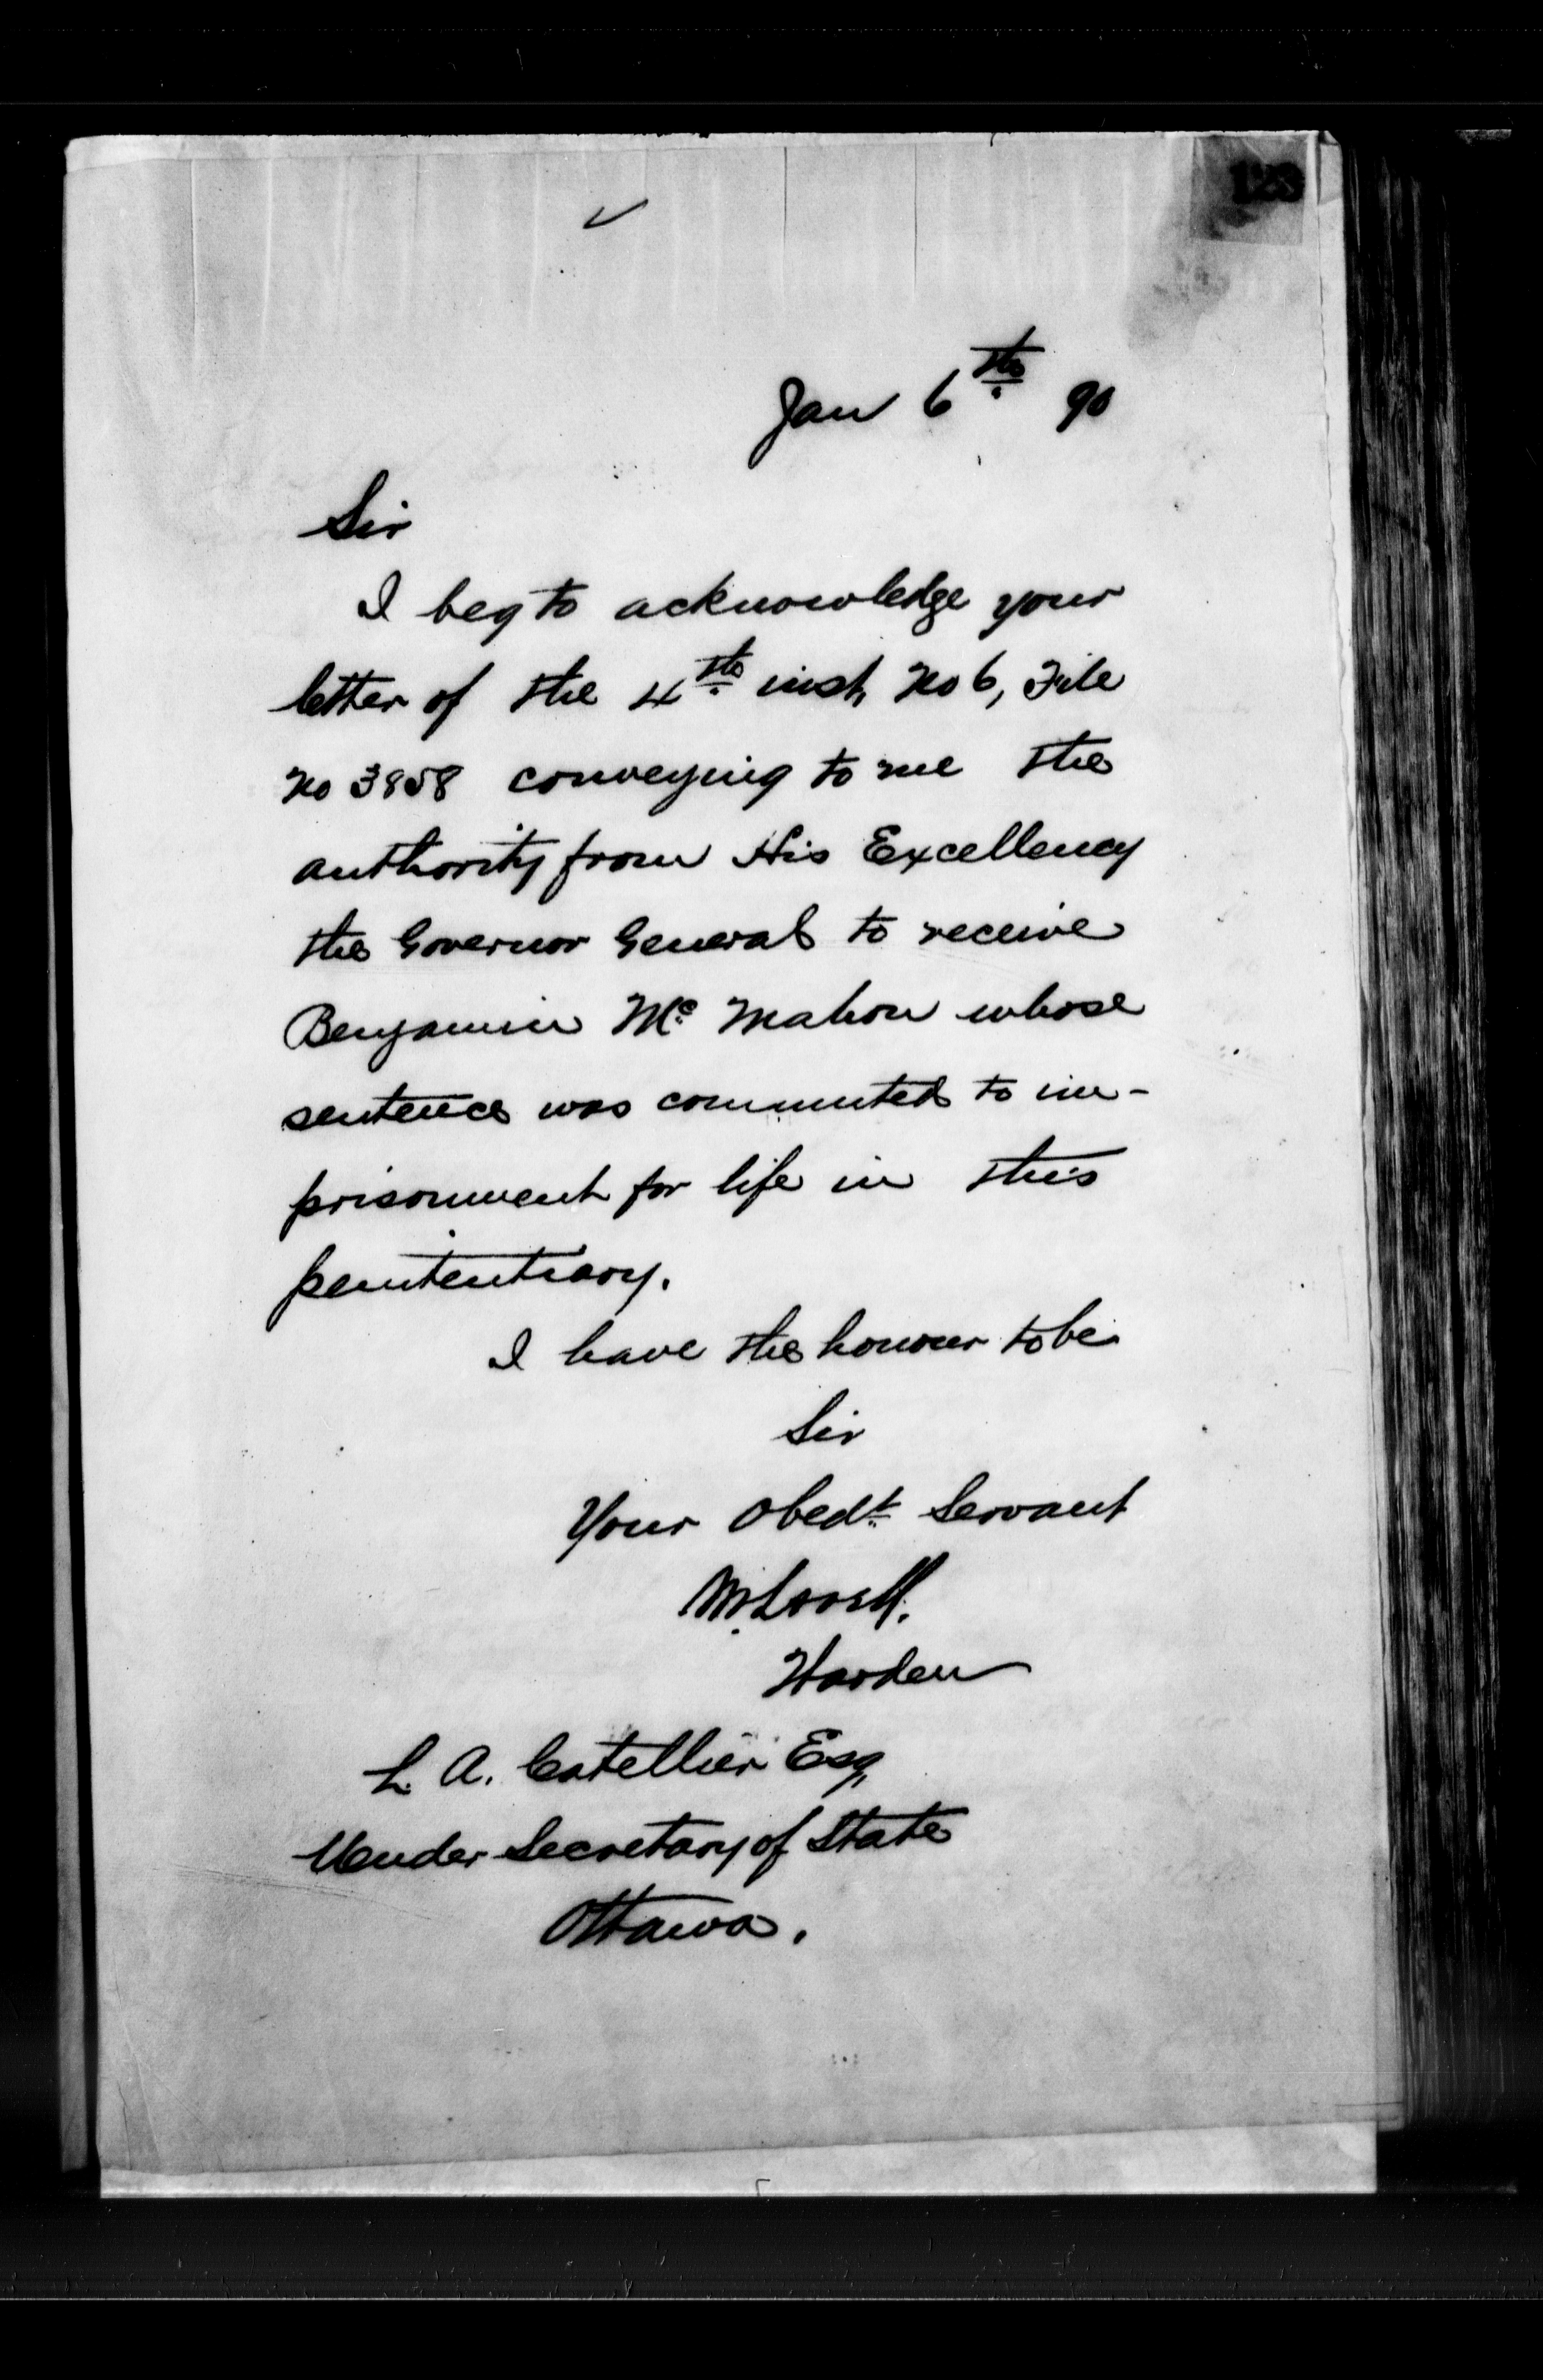 123
Jan 6th 90
Sir
I beg to acknowledge your
letter of the 4th inst, No 6, File
No 3858 conveying to me the
authority from His Excellency
the Governor General to receive
Benjamin Mc Mahon whose
sentence was commuted to im-
prisonment for life in this
penitentiary.
I have the honour to be
Sir
Your Obedt Servant
M. Lavell.
Warden
L. A. Catellier Esq,
Under Secretary of State
Ottawa.